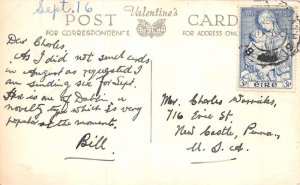 Sept. 16
POST CARD
Valentine's
FOR CORRESPONDENCE
FOR ADDRESS ONLY
Dear Charles,
As I did not send cards
in August as requested I
am sending six for Sept.
Here is one of Dublin, a
novelty type which is very
popular at the moment.
Bill
Mr. Charles
716 Erie St.
New Castle, Penna.,
U.S.A.
3d EIRE 3d